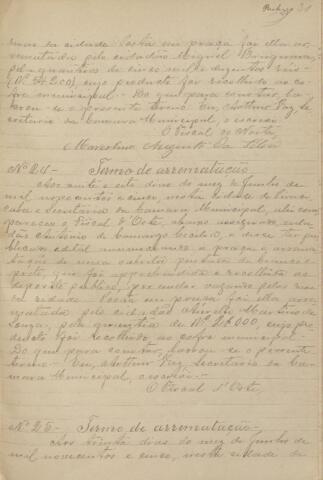 ruas da cidade. Posta em praça foi ella ar-
rematada pelo cidadão Miguel
pela quantia de cinco mil e duzentos reis
(Rs 5$200), cujo producto foi recolhido ao co-
fre municipal. - Do que para constar, la-
vrou-se o presente termo. Eu, Arthur Vaz, Se-
cretario da Camara Municipal, o escrevi.
O Fiscal do Norte,
Marcolino Augusto da Silva
Nº 24 - Termo de arrematação -
Aos vinte e sete dias do mez de Junho de
mil novecentos e cinco, nesta cidade de Piraci-
caba e Secretaria da Camara Municipal, ahi com-
pareceu o Fiscal d'Oeste,
dão Antonio de Camargo e disse ter pu-
blicado edital annunciando a praça e arrema-
tação de uma cabrita de branco e
preto, que foi apprehendida e recolhida ao
deposito publico, por andar vagando pelas ruas
da cidade. Posta em praça foi ella arre-
matada pelo cidadão Martins de
Souza, pela quantia de Rs 2$000, cujo pro-
ducto foi recolhido ao cofre municipal. -
Do que para constar, lavrou-se o presente
termo. - Eu, Arthur Vaz, Secretario da Ca-
mara Municipal, o escrevi. -
O Fiscal d'Oeste,
Nº 25 - Termo de arrematação -
Aos trinta dias do mez de Junho de
mil novecentos e cinco, nesta cidade de